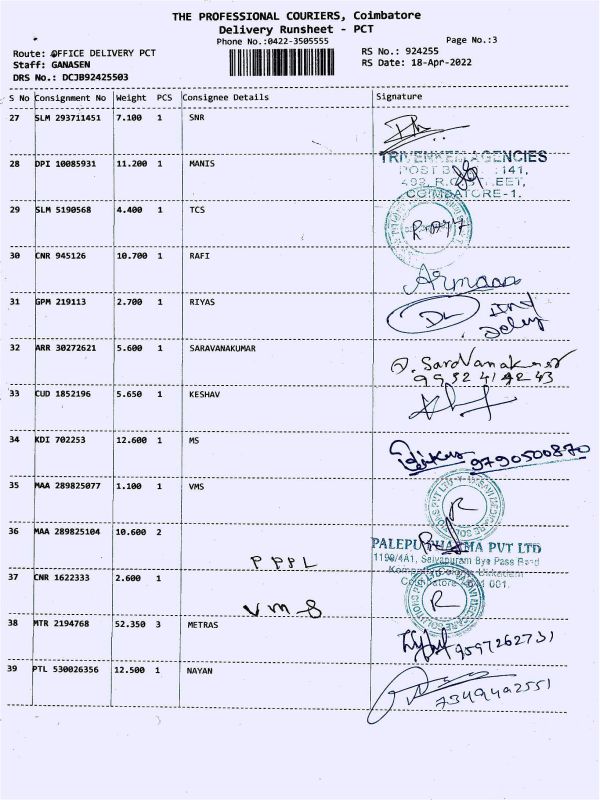 THE PROFESSIONAL COURIERS, Coimbatore
Delivery Runsheet - PCT
Phone No.:0422-3505555
Page No.:3
Route: OFFICE DELIVERY PCT
RS No.: 924255
Staff: GANASEN
RS Date: 18-Apr-2022
DRS No.: DCJB92425503
S No Consignment No Weight PCS Consignee Details Signature
27 SLM 293711451 7.100 1 SNR
28 DPI 10085931 11.200 1 MANIS
TRIVENKEM AGENCIES
POST 141,
COIMBATORE-1.
29 SLM 5190568 4.400 1 TCS
30 CNR 945126 10.700 1 RAFI
Armaan
31 GPM 219113 2.700 1 RIYAS
32 ARR 30272621 5.600 1 SARAVANAKUMAR
33 CUD 1852196 5.650 1 KESHAV
34 KDI 702253 12.600 1 MS
9790500870
35 MAA 289825077 1.100 1 VMS
R
36 MAA 289825104 10.600 2
PPPL
PALEPU PHARMA PVT LTD
1199/4A1, Selvapuram Bye Pass Road
37 CNR 1622333 2.600 1
VMS
R
38 MTR 2194768 52.350 3 METRAS
9597262731
39 PTL 530026356 12.500 1 NAYAN
7349492551